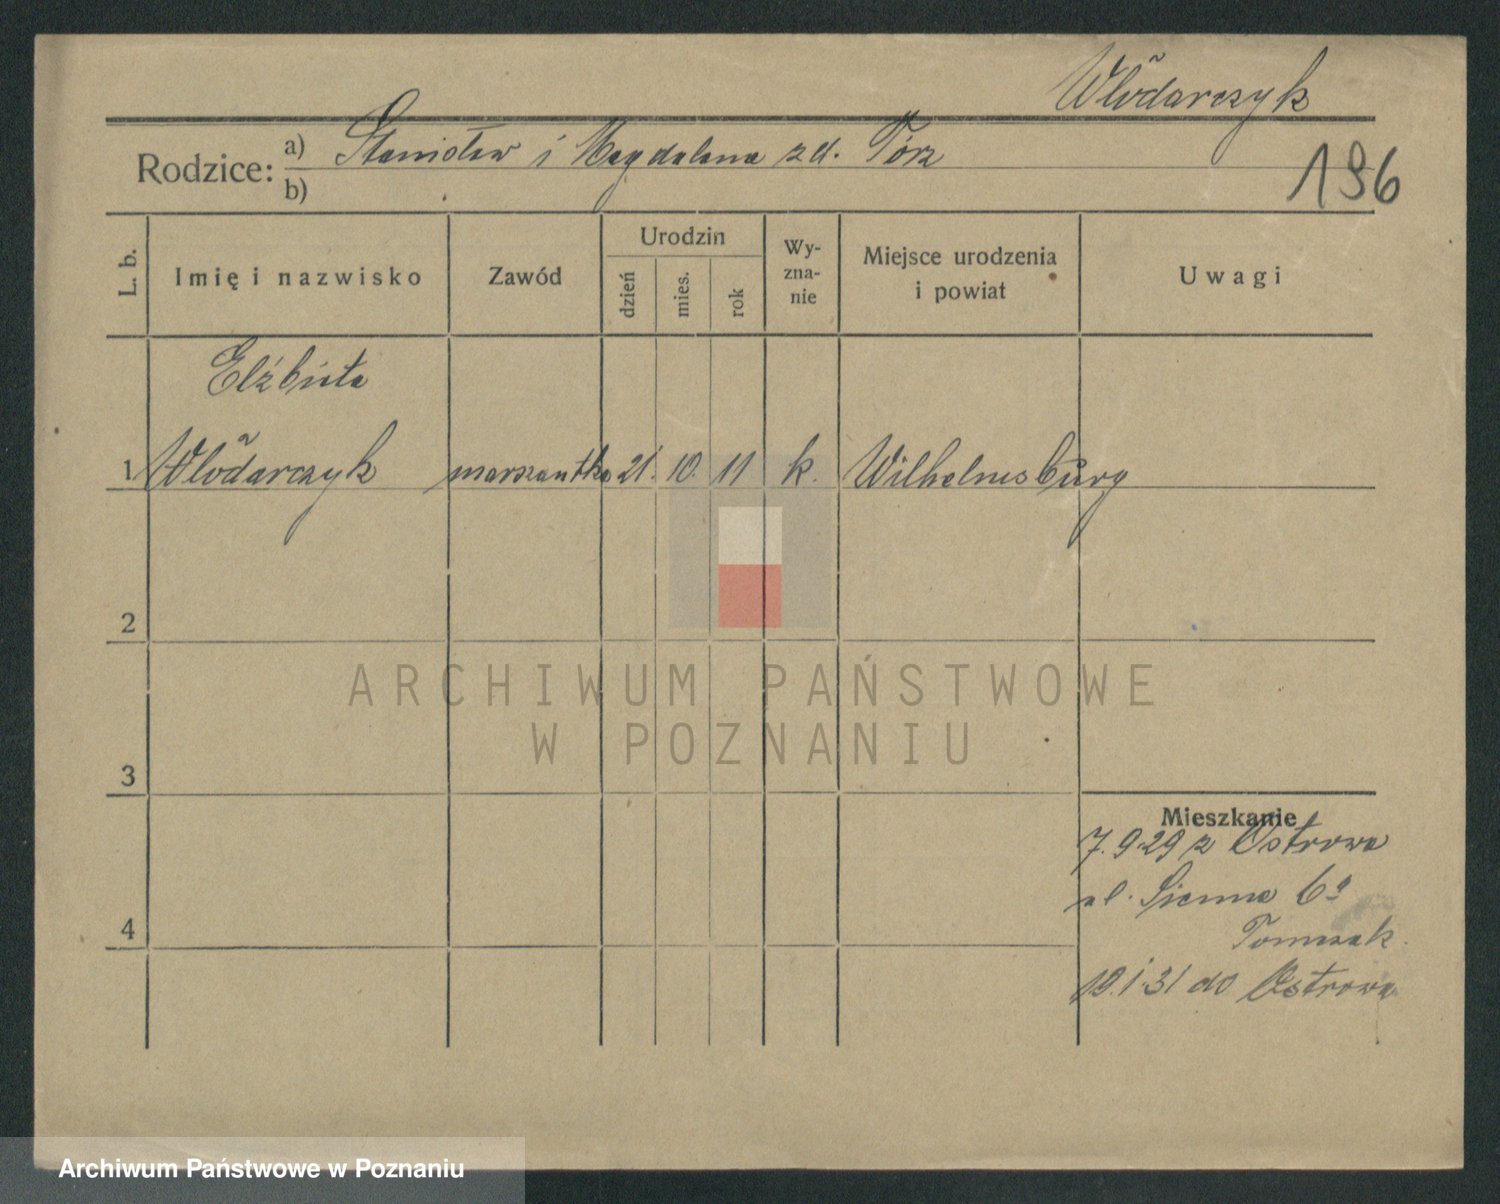 Włodarczyk
Rodzice: a) Stanisław i Magdalena zd. Tórz
b)
196
L. b.
Imię i nazwisko
Zawód
Urodzin
dzień
mies.
rok
Wy-
zna-
nie
Miejsce urodzenia
i powiat
Uwagi
Elżbieta
1 Włodarczyk marszantka 21. 10. 11 k. Wilhelmsburg
2
ARCHIWUM PAŃSTWOWE
W POZNANIU
3
Mieszkanie
7.9.29 z Ostrowa
ul. Sienna 6a
4
Tomczak.
19.1.31 do Ostrowa
Archiwum Państwowe w Poznaniu